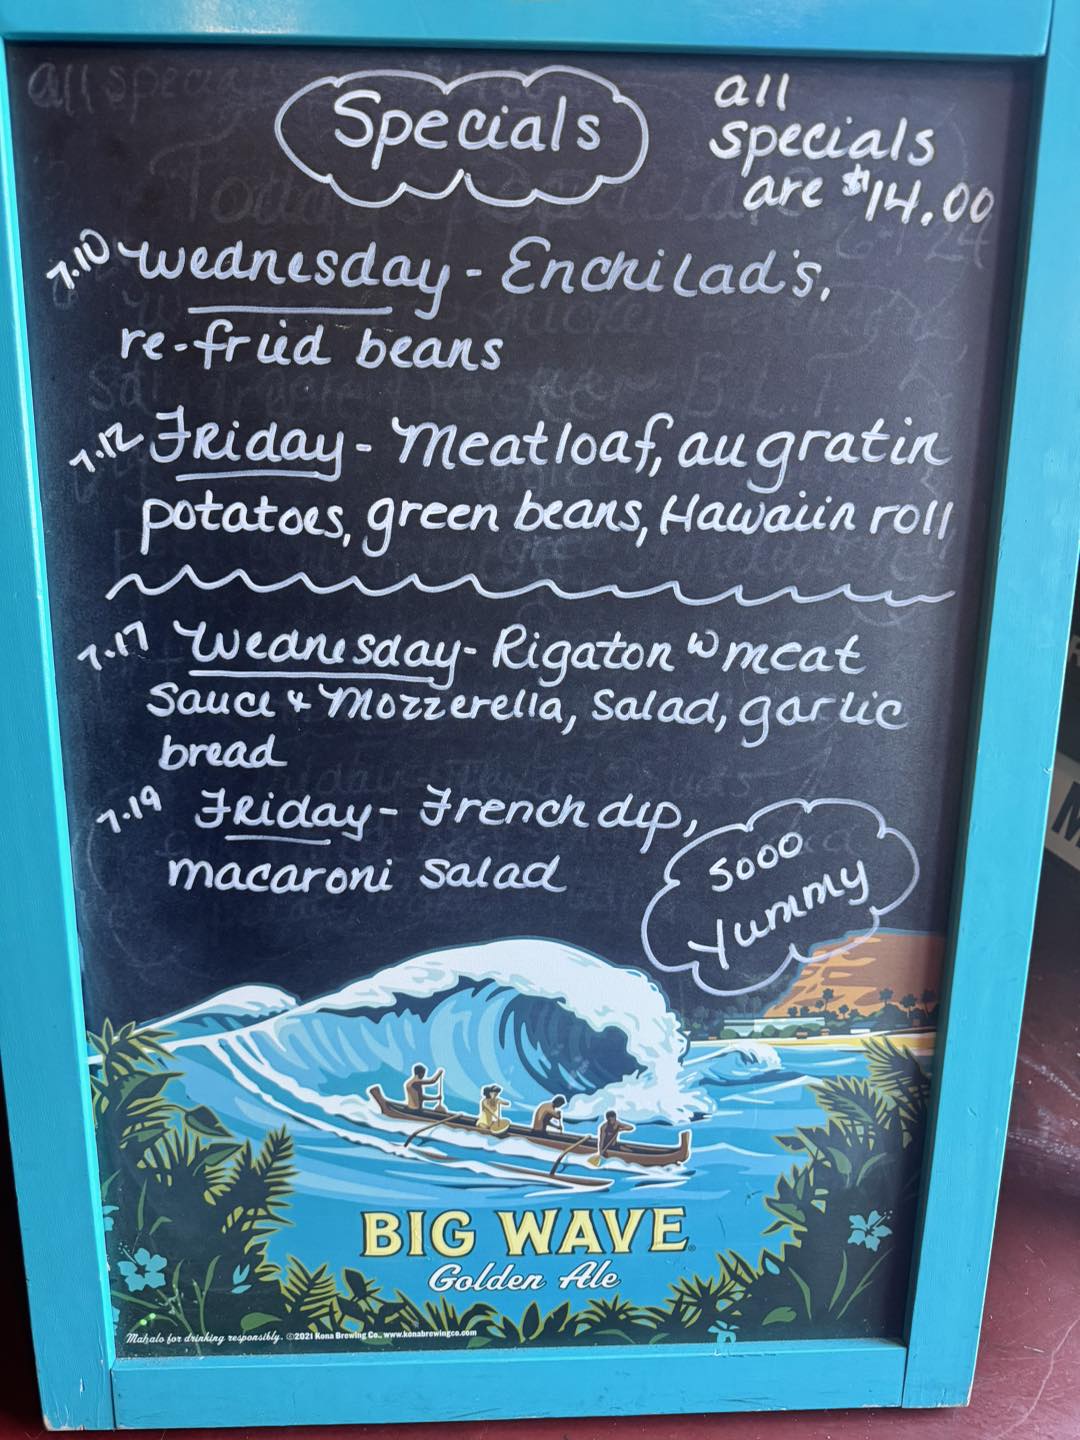 Specials
all
specials
are $14.00
7.10 Wednesday - Enchilad's,
re-fried beans
7.12 Friday - Meatloaf, au gratin
potatoes, green beans, Hawaiin roll
7.17 Wednesday - Rigaton w meat
Sauce & Mozzerella, Salad, garlic
bread
7.19 Friday - French dip,
macaroni Salad
Sooo
Yummy
BIG WAVE
Golden Ale
Mahalo for drinking responsibly. ©2021 Kona Brewing Co., www.konabrewingco.com